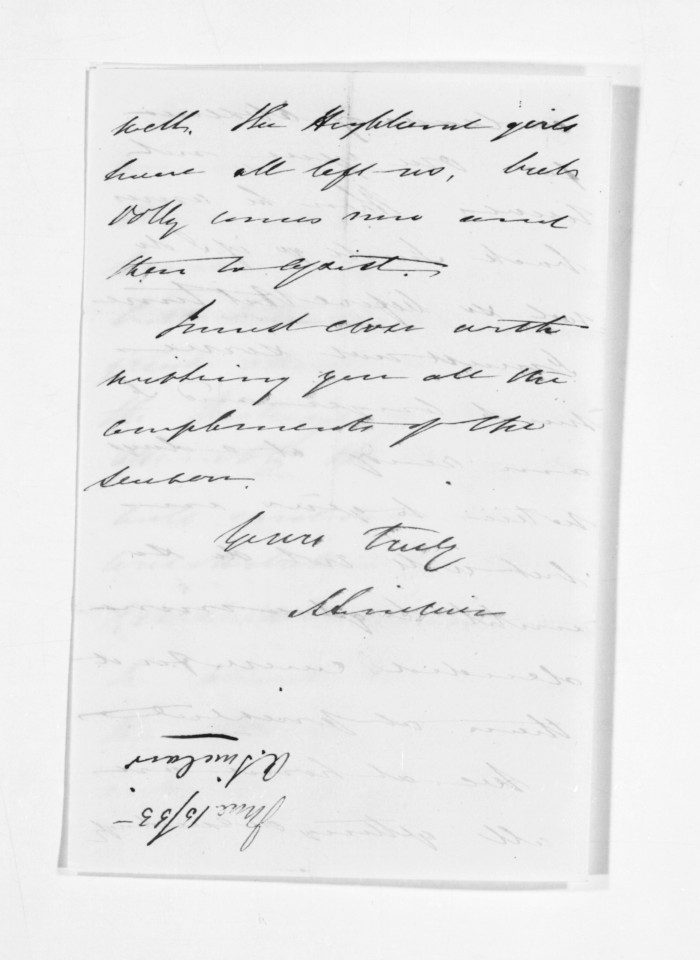 well. The Highland girls
have all left us, but
Dolly comes now and
then to assist.
I must close with
wishing you all the
compliments of the
season.
Yours truly
A Sinclair
A. Sinclair
15/53